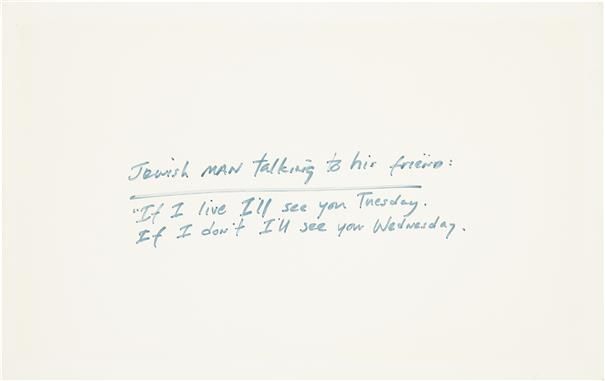 Jewish MAN talking to his friend:
"If I live I'll see you Tuesday.
If I don't I'll see you Wednesday.